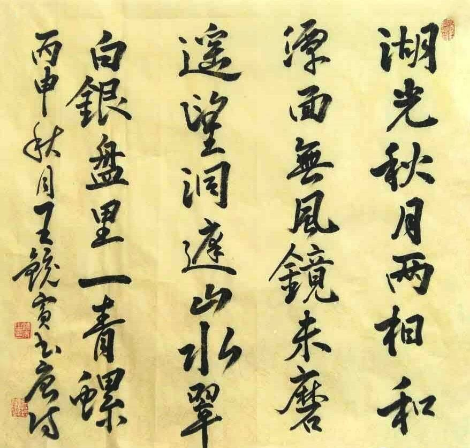 湖光秋月两相和
潭面無風鏡未磨
遥望洞庭山水翠
白銀盘里一青螺
丙申秋月王鏡寅书唐诗